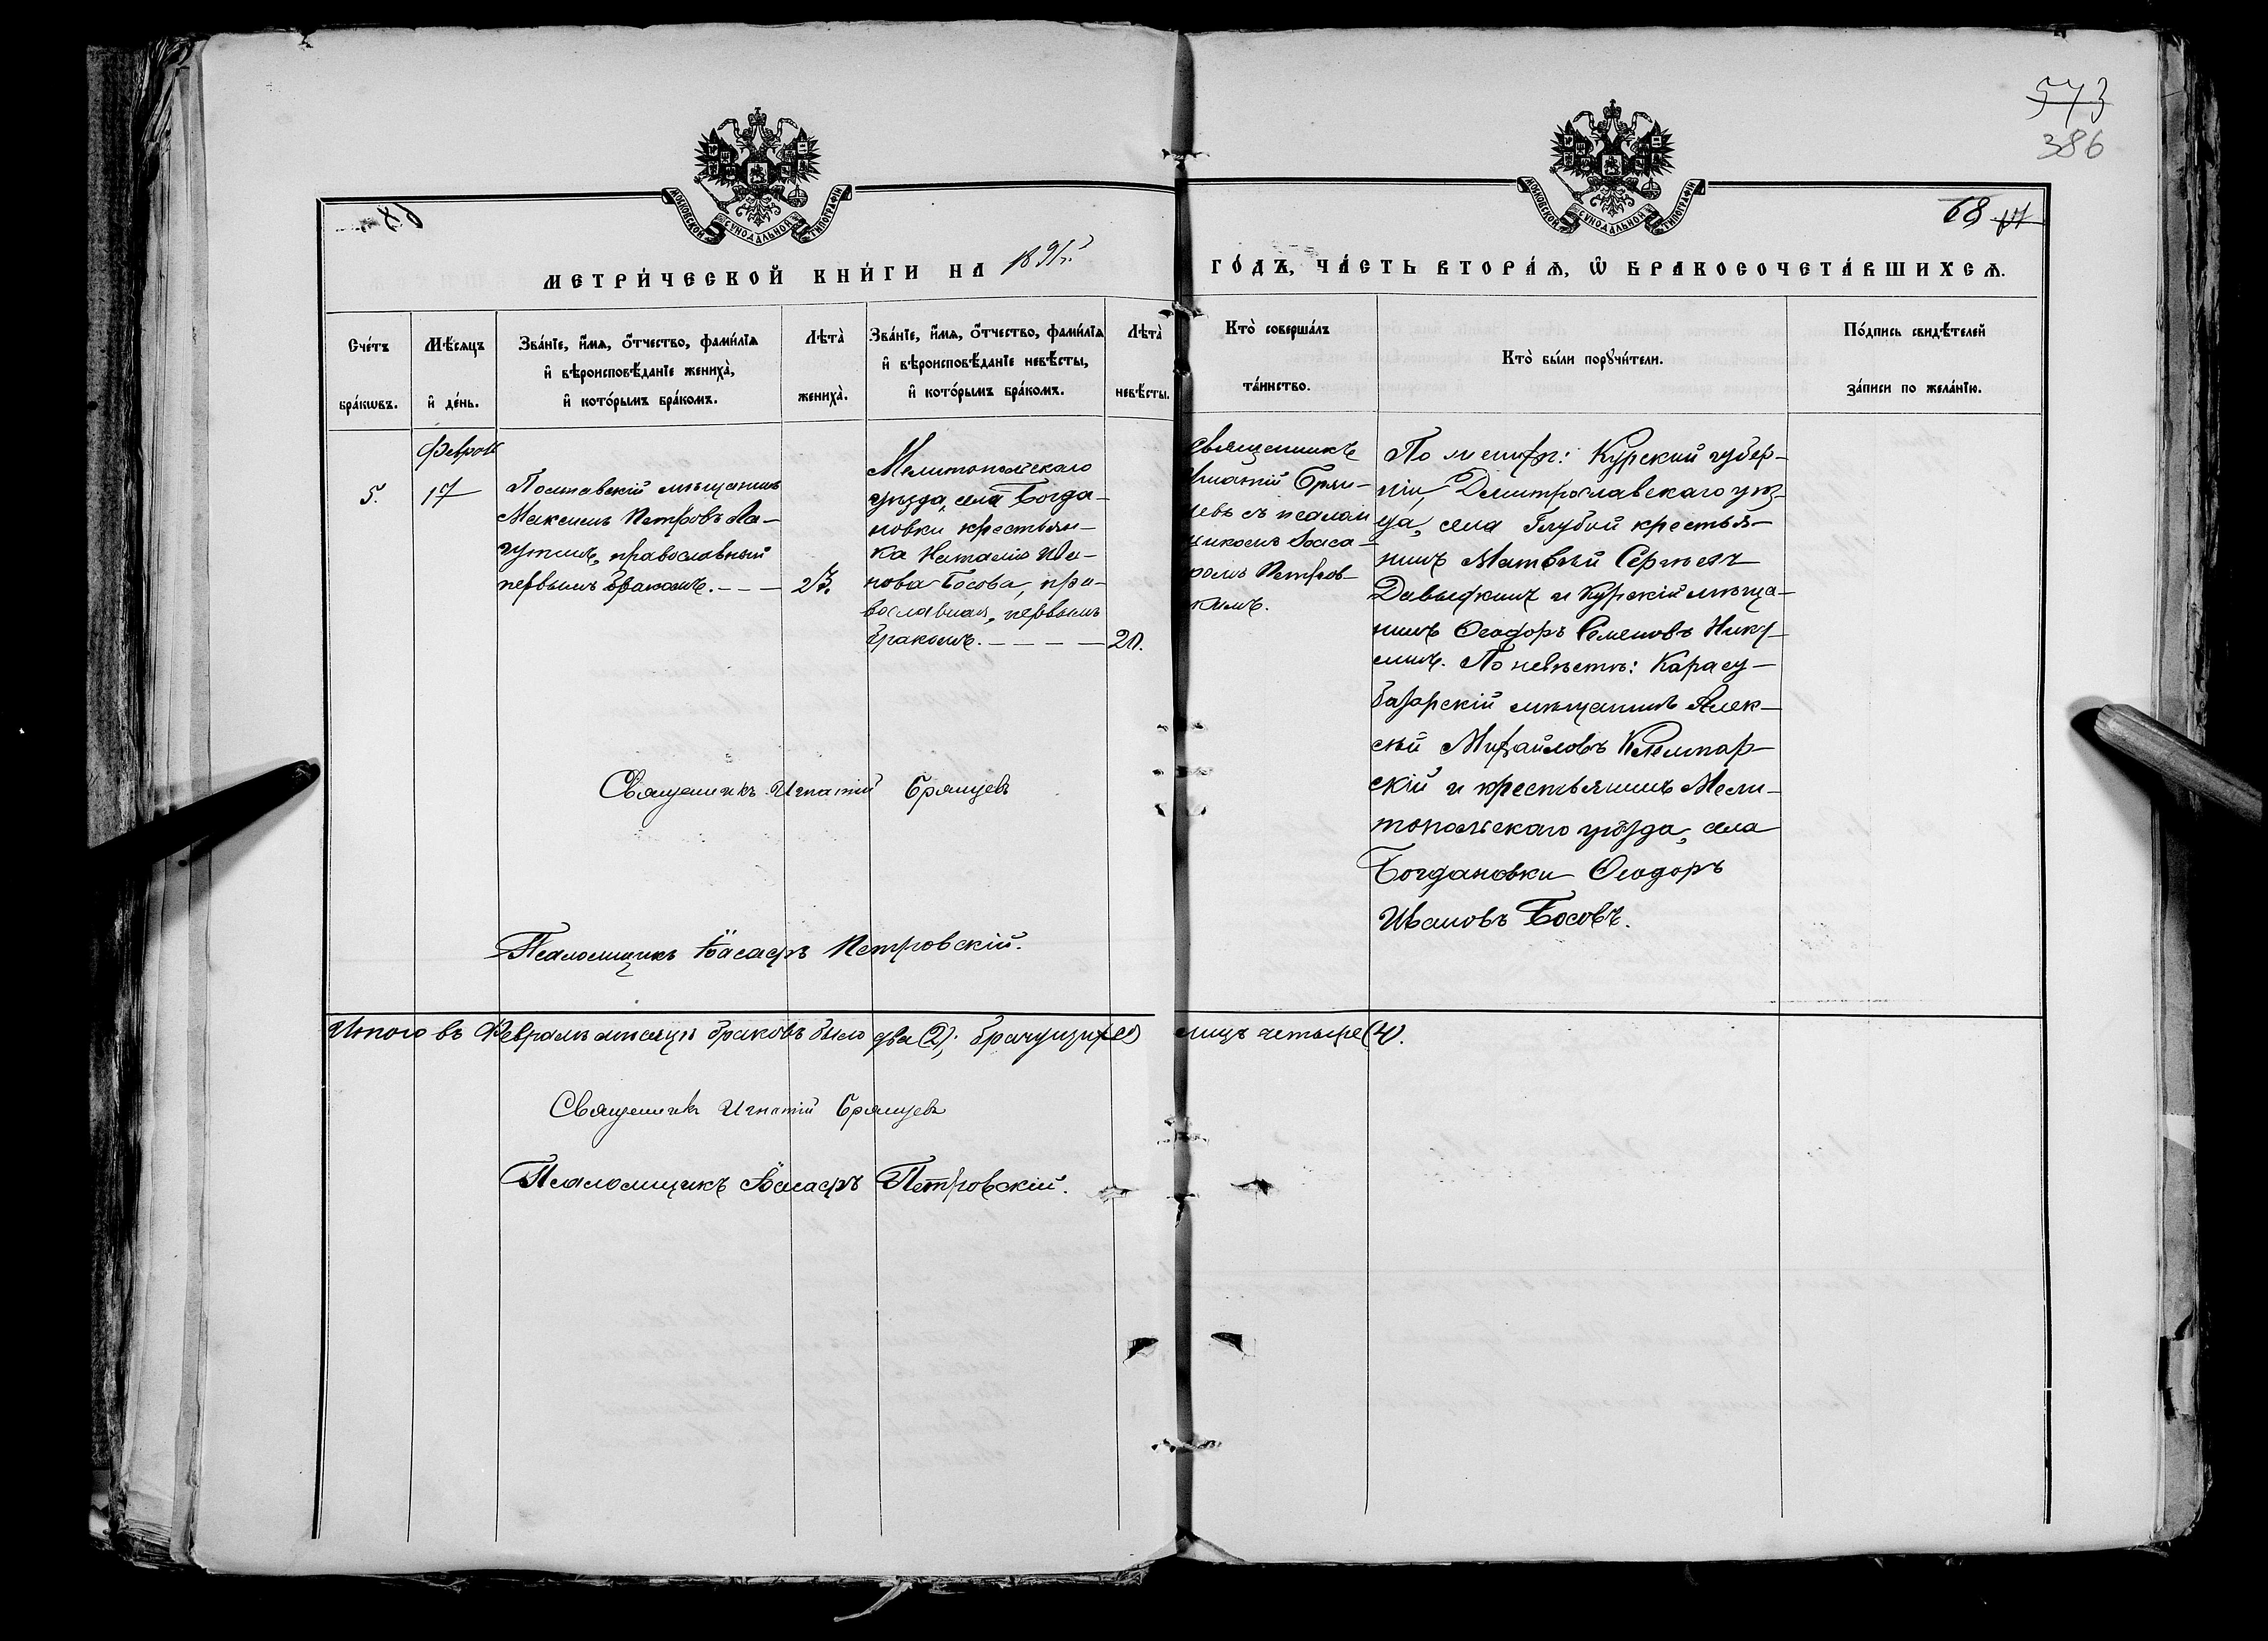 573
386
68
МОСКОВСКОЙ СѴНОДАЛЬНОЙ ТИПОГРАФІИ
МОСКОВСКОЙ СѴНОДАЛЬНОЙ ТИПОГРАФІИ
МЕТРИ́ЧЕСКОЙ КНИ́ГИ НА 1891 г. ГО́ДЪ, ЧА́СТЬ ВТОРА́Ѧ, Ѽ БРАКОСОЧЕТА́ВШИХСѦ.
Сче́тъ
бра́кѡвъ.
Мѣ́сѧцъ
и҆ де́нь.
Зва́нїе, и҆́мѧ, ѻ҆́тчество, фами́лїѧ
и҆ вѣроисповѣ́данїе жениха̀,
и҆ кото́рымъ бра́комъ.
Лѣта̀
жениха̀.
Зва́нїе, и҆́мѧ, ѻ҆́тчество, фами́лїѧ
и҆ вѣроисповѣ́данїе невѣ́сты,
и҆ кото́рымъ бра́комъ.
Лѣта̀
невѣ́сты.
Кто̀ соверша́лъ
та́инство.
Кто̀ бы́ли порꙋчи́тели.
По́дпись свидѣ́телей
за́писи по жела́нїю.
Феврал
5.
17
Полтавскій мѣщанинъ
Максимъ Петровъ Ла-
гутинъ, православный
первымъ бракомъ. - - -
23.
Мелитопольскаго
уѣзда, села Богда-
новки крестьян-
ка Наталія Ива-
нова Босова, пра-
вославная, первымъ
бракомъ. - - - -
20.
Священникъ
Игнатій Брян-
цевъ съ псалом
щикомъ
Петров-
кимъ.
По жениху: Курской губер-
ніи, Дмитрославскаго уѣз-
да, села Глубой крестья-
нинъ Матвѣй Сергѣевъ
Давыдкинъ и Курскій мѣща-
нинъ Ѳеодоръ Семеновъ Нику-
линъ. По невѣстѣ: Карасу-
базарскій мѣщанинъ Алек-
сѣй Михайловъ
скій и крестьянинъ Мели-
топольскаго уѣзда, села
Богдановки Ѳеодоръ
Ивановъ Босовъ.
Священникъ Игнатій Брянцевъ
Псаломщикъ Петровскій.
Итого въ Февралѣ мѣсяцѣ браковъ было два (2); брачущихся лицъ четыре (4).
Священникъ Игнатій Брянцевъ
Псаломщикъ Петровскій.